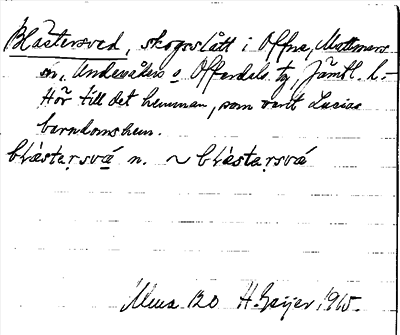 Blästersved, skogsslått i Offne, Mattmars
sn, Undersåkers o. Offerdals tg, Jämtl. l. –
Hör till det hemman, som varit Lucias
barndomshem.
blästaṛsvá n. ~ blästaṛsvá
120 H. Geijer, 1915.